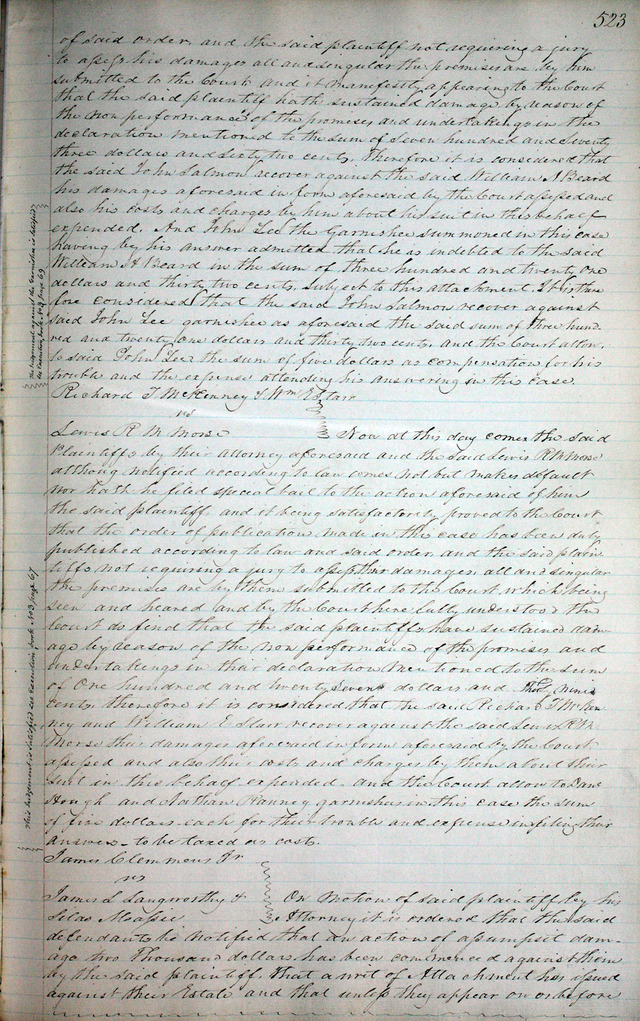 523
of said order, and the said plaintiff not requiring a jury
to assess his damages all and singular the premises are by him
submitted to the Court and it manifestly appearing to the Court
that the said plaintiff hath sustained damage by reason of
the non performance of the promises and undertakings in the
declaration mentioned to the sum of Seven hundred and Seventy
three dollars and Sixty two cents, therefore it is considered that
the said John Salmon recover against the said William H Beard
his damages aforesaid in form aforesaid by the Court assessed and
also his costs and charges by him about his suit in this behalf
expended. And John Lee the Garnishee summoned in this case
having by his answer admitted that he is indebted to the said
William H Beard in the sum of three hundred and twenty one
dollars and thirty two cents, subject to this attachment. It is, there
fore considered that the said John Salmon recover against
said John Lee garneshee as aforesaid the said sum of three hund
red and twenty one dollars and thirty two cents, and the Court allow,
to said John Lee the sum of five dollars as compensation for his
trouble and the expense attending his answering in this case.
Richard T McKenney & Wm E Starr
vs
Lewis R M Morse Now at this day comes the said
Plaintiffs by their attorney aforesaid and the said Lewis R M Morse
although notified according to law comes not but makes default
nor hath he filed special bail to the action aforesaid of him
the said plaintiff, and it being satisfactorily proved to the Court
that the order of publication made in the case has been duly
published according to law and said order, and the said plain
tiffs not requiring a jury to assess their damages all and singular
the premises are by them submitted to the Court, which being
seen and heared and by the Court here fully understood the
Court do find that the said plaintiffs have sustained dam
age by reason of the non performance of the promises and
undertakings in their declaration mentioned to the sum
of One hundred and twenty Seven dollars and Thirty nine
cents, therefore it is considered that the said Richard T McKen
ney and William E Starr recover against the said Lewis R M
Morse their damages aforesaid in form aforesaid by the Court
assessed and also their costs and charges by them about their
suit in this behalf expended. and the Court allow to
Hough and Nathan Ranney garnishees in this case the sum
of five dollars each for their trouble and expense in filing their
answers - to be taxed as costs.
James Clemmens Jr
vs
James L Langworthy & On Motion of said plaintiff by his
Silas Attorney it is ordered that the said
defendants be notified that an action of assumpsit dam-
age two thousand dollars has been commenced against them
by the said plaintiff. that a writ of Attachment has issued
against their Estate and that unless they appear on or before
the judgement against the Garnishee is satisfied
see Execution book No 3 page 69
This judgement is satisfied see execution book No 3 page 67